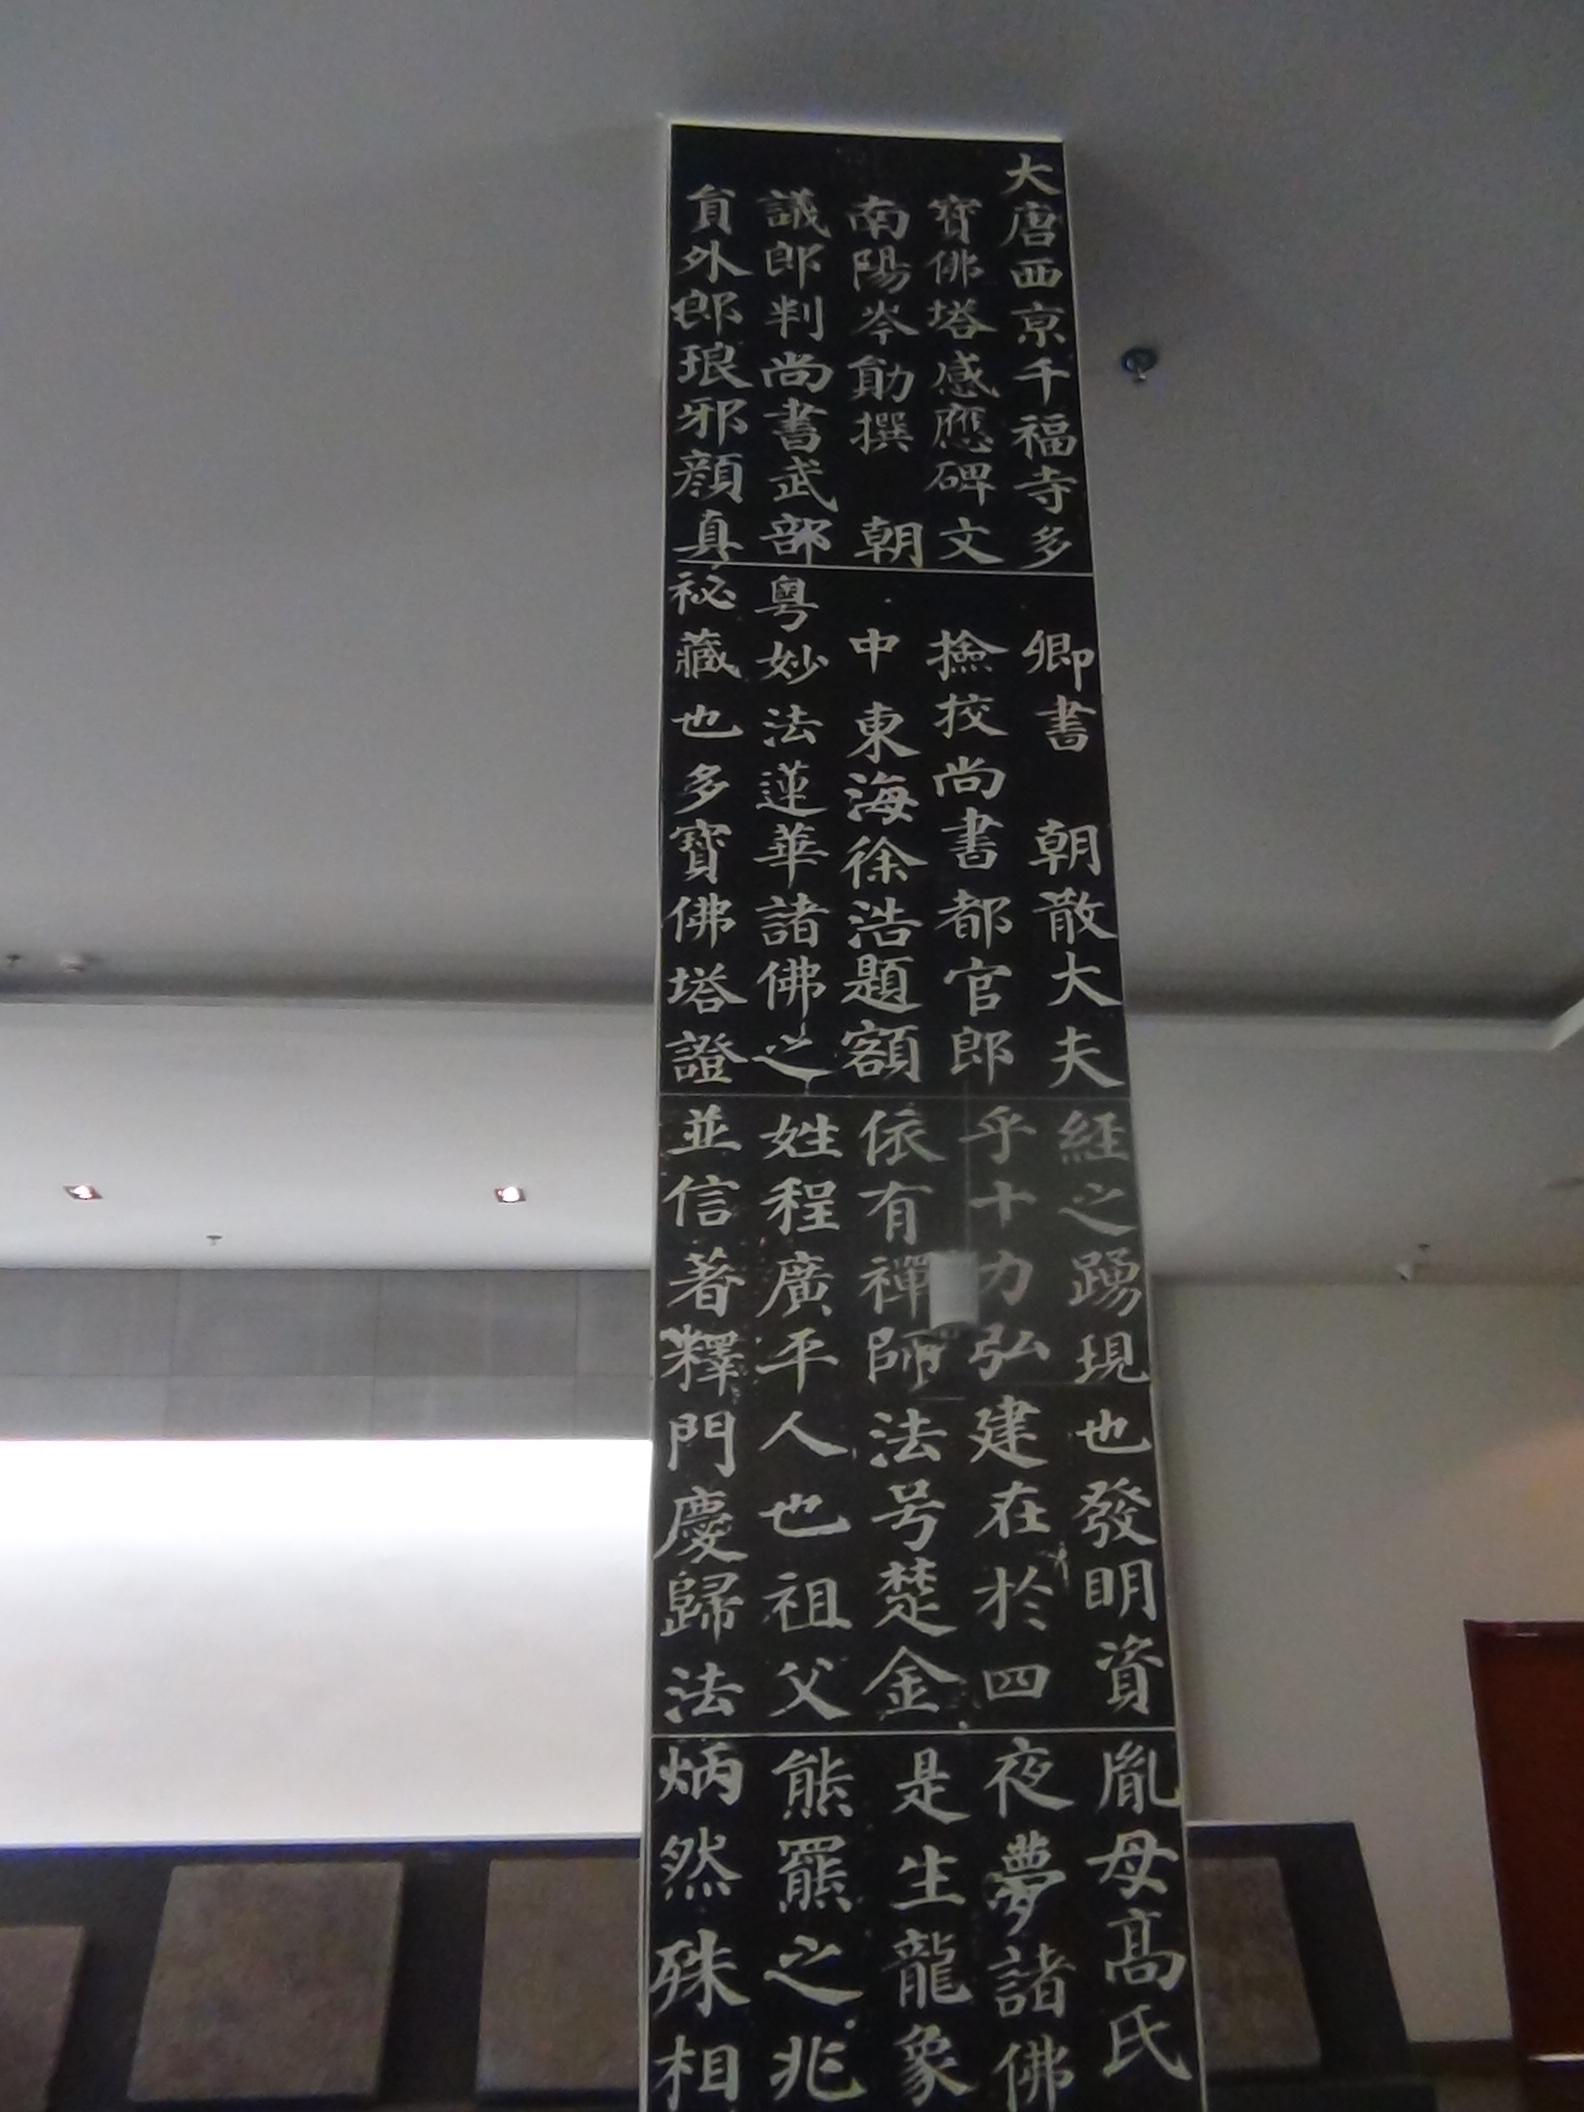 大唐西京千福寺多
寶佛塔感應碑文
南陽岑勛撰 朝
議郎判尚書武部
員外郎琅邪顏真
卿書 朝散大夫
撿挍尚書都官郎
中東海徐浩題額
粵妙法蓮華諸佛之
祕藏也多寶佛塔證
經之踴現也發明資
乎十力弘建在於四
依有禪師法号楚金
姓程廣平人也祖父
並信著釋門慶歸法
胤母高氏
夜夢諸佛
是生龍象
熊羆之兆
炳然殊相